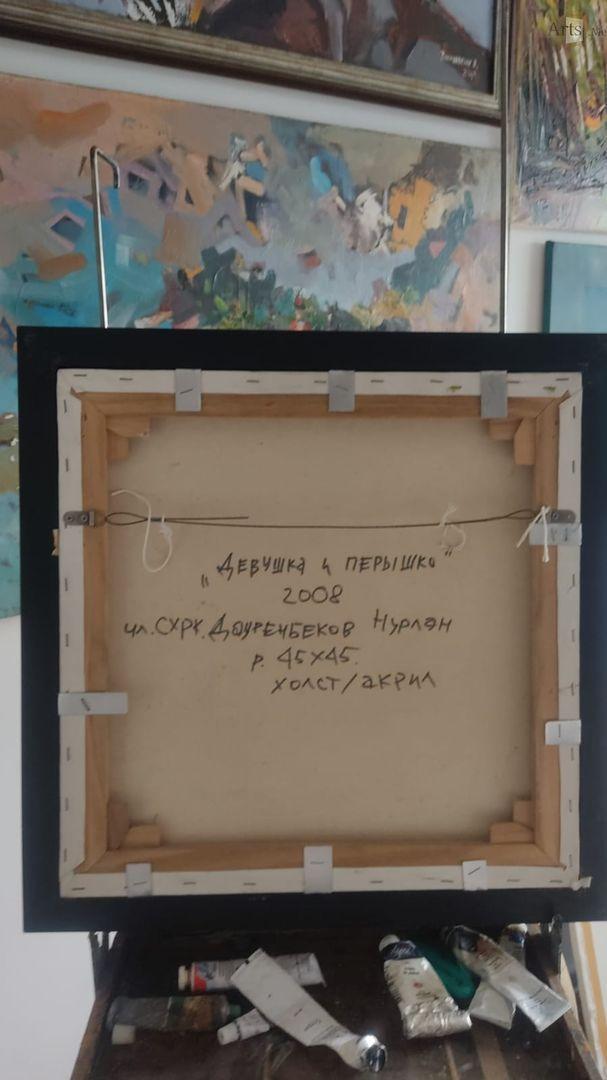 Arts
„ДЕВУШКА и ПЕРЫШКО"
2008
чл.СХРК. Дауренбеков Нурлан
р. 45х45.
холст/акрил